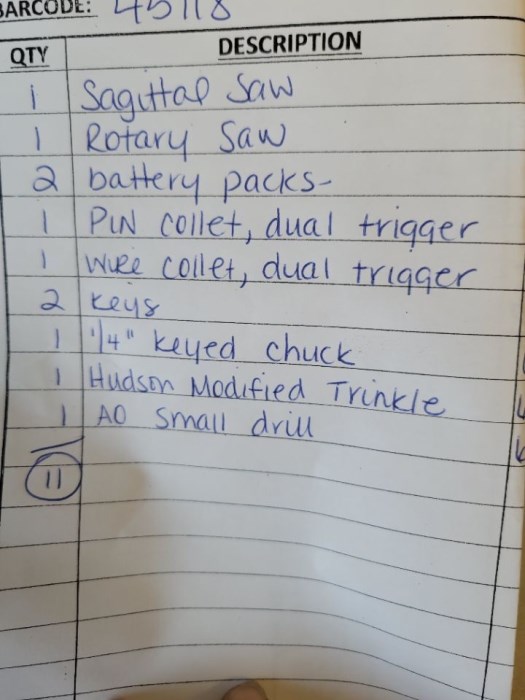 BARCODE: 45118
QTY DESCRIPTION
1 Sagittal Saw
1 Rotary Saw
2 battery packs-
1 PIN collet, dual trigger
1 WIRE collet, dual trigger
2 keys
1 1/4" keyed chuck
1 Hudson Modified Trinkle
1 AO small drill
11